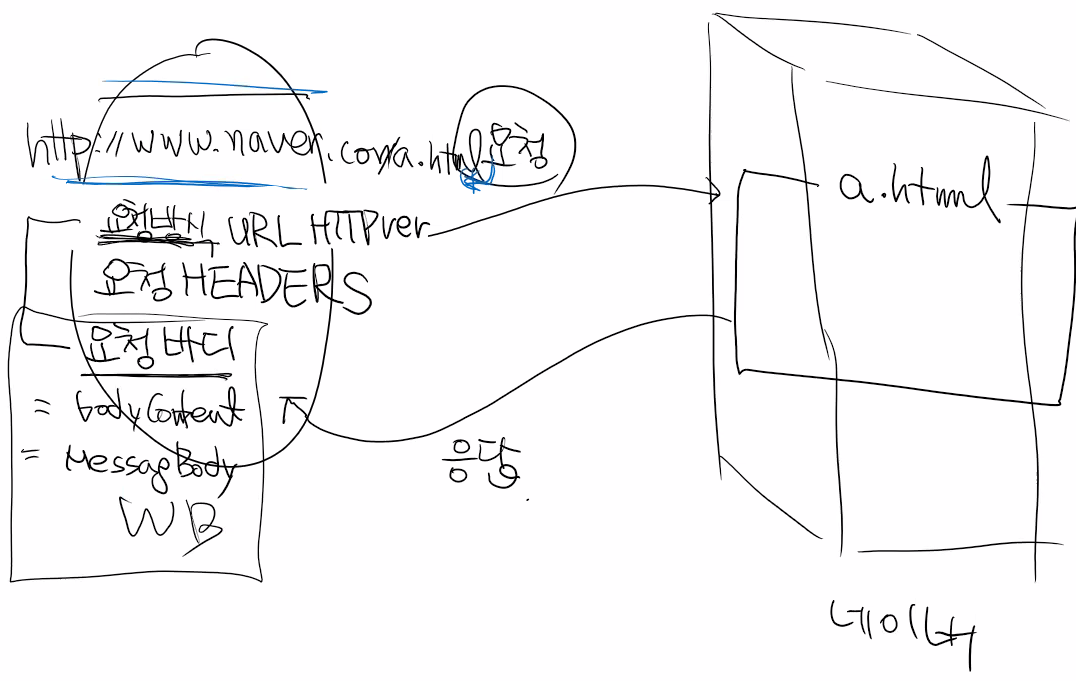 http://www.naver.com/a.html 요청
요청방식 URL HTTPver
요청 HEADERS
요청 바디
= bodyContent
= MessagBody
WB
응답
a.html
네이버